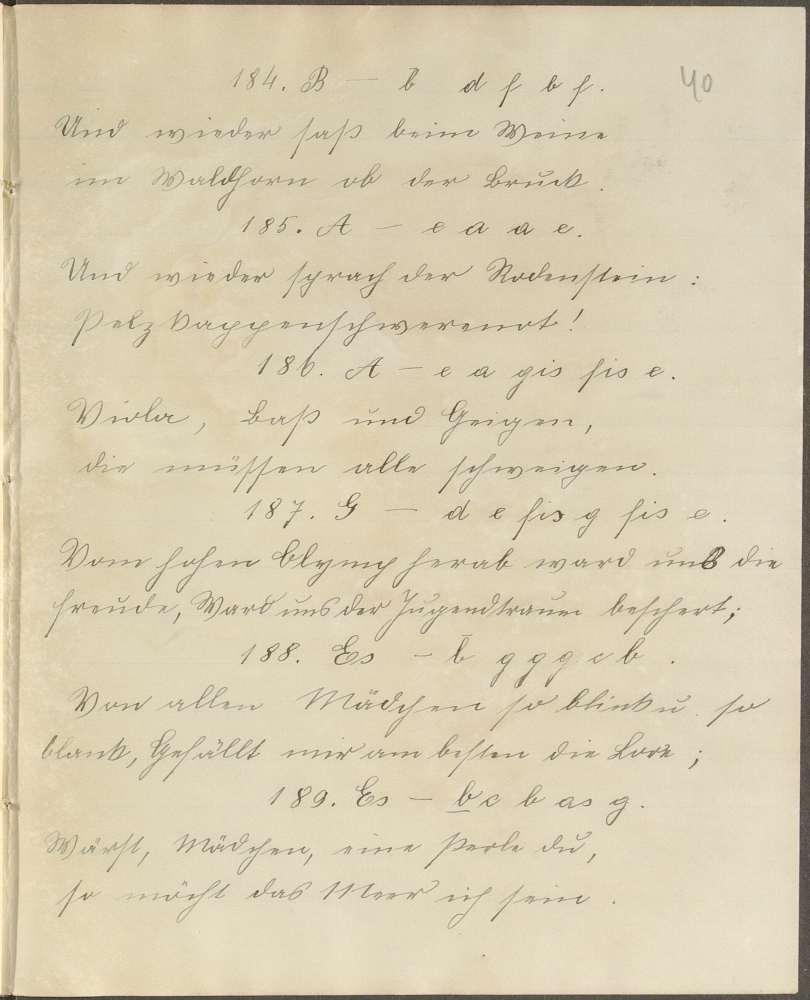 40
184. B — b d f b f.
Und wieder saß beim Weine
im Waldhorn ob der Bruck.
185. A — e a a e.
Und wieder sprach der Rodenstein:
Pelzkappenschwerenot!
186. A — e a gis fis e.
Viola, Baß und Geigen,
die müssen alle schweigen.
187. G — d e fis g fis e.
Vom hohen Olymp herab ward uns die
Freude, Ward uns der Jugendtraum beschert;
188. Es — b g g g c b.
Von allen Mädchen so blink u. so
blank, Gefällt mir am besten die Lore;
189. Es — b c b as g.
Wärst, Mädchen, eine Perle du,
so möcht das Meer ich sein.